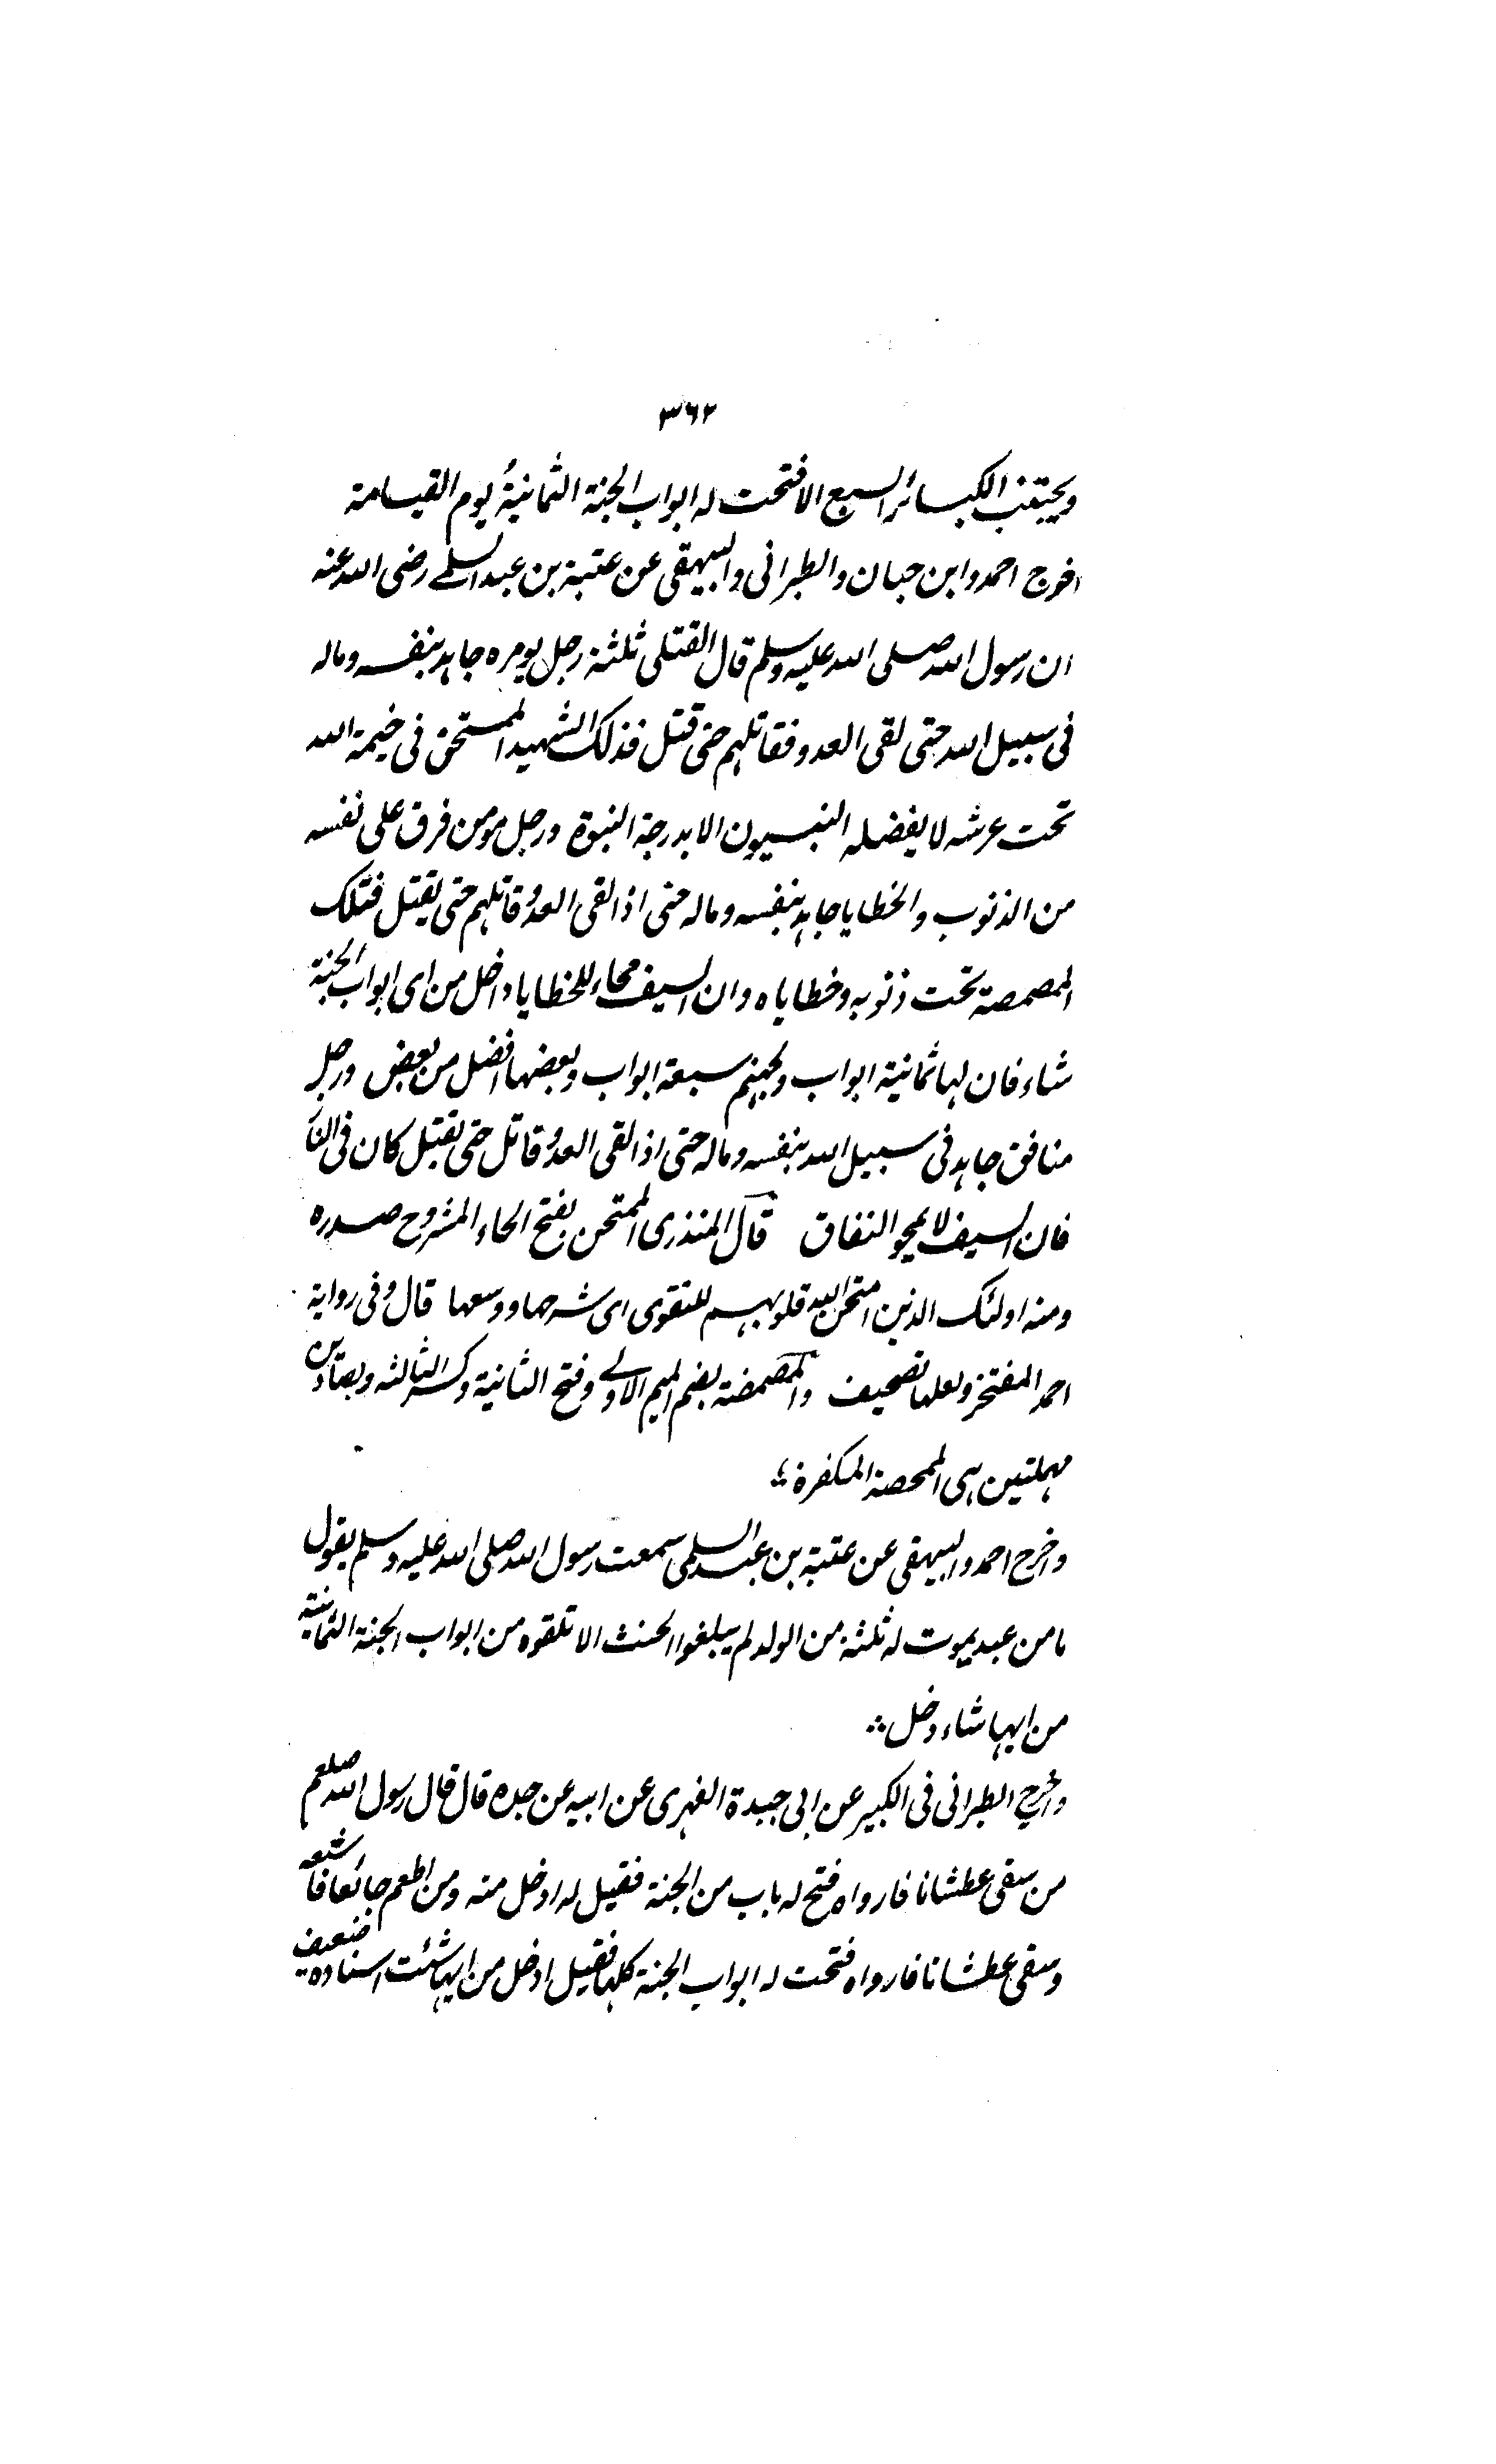 ٣٦٢
ويجتنب الكبائر السبع الا فتحت له ابواب الجنة الثمانية يوم القيامة
اخرج احمد وابن حبان والطبرانى والبيهقى عن عتبة بن عبد السلمے رضى الله عنه
ان رسول الله صلى الله عليه وسلم قال القتلى ثلثة رجل يومره جاهد بنفسه وماله
فى سبيل الله حتى لقى العدو فقاتلهم حتى قتل فذلك الشهيد الممتحن فى خيمة الله
تحت عرشه لا يفضله النبيون الا بدرجة النبوة ورجل مومن فرق على نفسه
من الذنوب والخطايا جاهد بنفسه وماله حتى اذا لقى العدو قاتلهم حتى يقتل فتلك
المصمصة تحت ذنوبه وخطاياه وان السيف محاء للخطايا وادخل من اى ابواب الجنة
شاء فان لها ثمانية ابواب ولجهنم سبعة ابواب وبعضها افضل من بعض ورجل
منافق جاهد فى سبيل الله بنفسه وماله حتى اذا لقى العدو قاتل حتى يقتل كان فى النار
فان السيف لا يمحو النفاق قال المنذرى الممتحن بفتح الحاء المشروح صدره
ومنه اولئك الذين امتحن الله قلوبهم للتقوى اى شرحها ووسعها قال وفى رواية
احمد المفتخر ولعلها تصحيف والمصمضة بضم الميم الاولے وفتح الثانية وكسر الثالثه وبصادين
مهملتين هى الممحصة المكفرة
واخرج احمد والبيهقى عن عتبة بن عبد السلمى سمعت رسول الله صلى الله عليه وسلم يقول
ما من عبد يموت له ثلثة من الولد لم يبلغوا الحنث الا تلقوه من ابواب الجنة الثمانية
من ايها شاء دخل
واخرج الطبرانى فى الكبير عن ابى جبيدة الفهرى عن ابيه عن جده قال قال رسول الله صلعم
من سقى عطشانا فارواه فتح له باب من الجنة فقيل له ادخل منه ومن اطعم جائعا فاشبعه
وسقى عطشانا فارواه فتحت له ابواب الجنة كلها فقيل ادخل من ايها شئت اسناده ضعيف